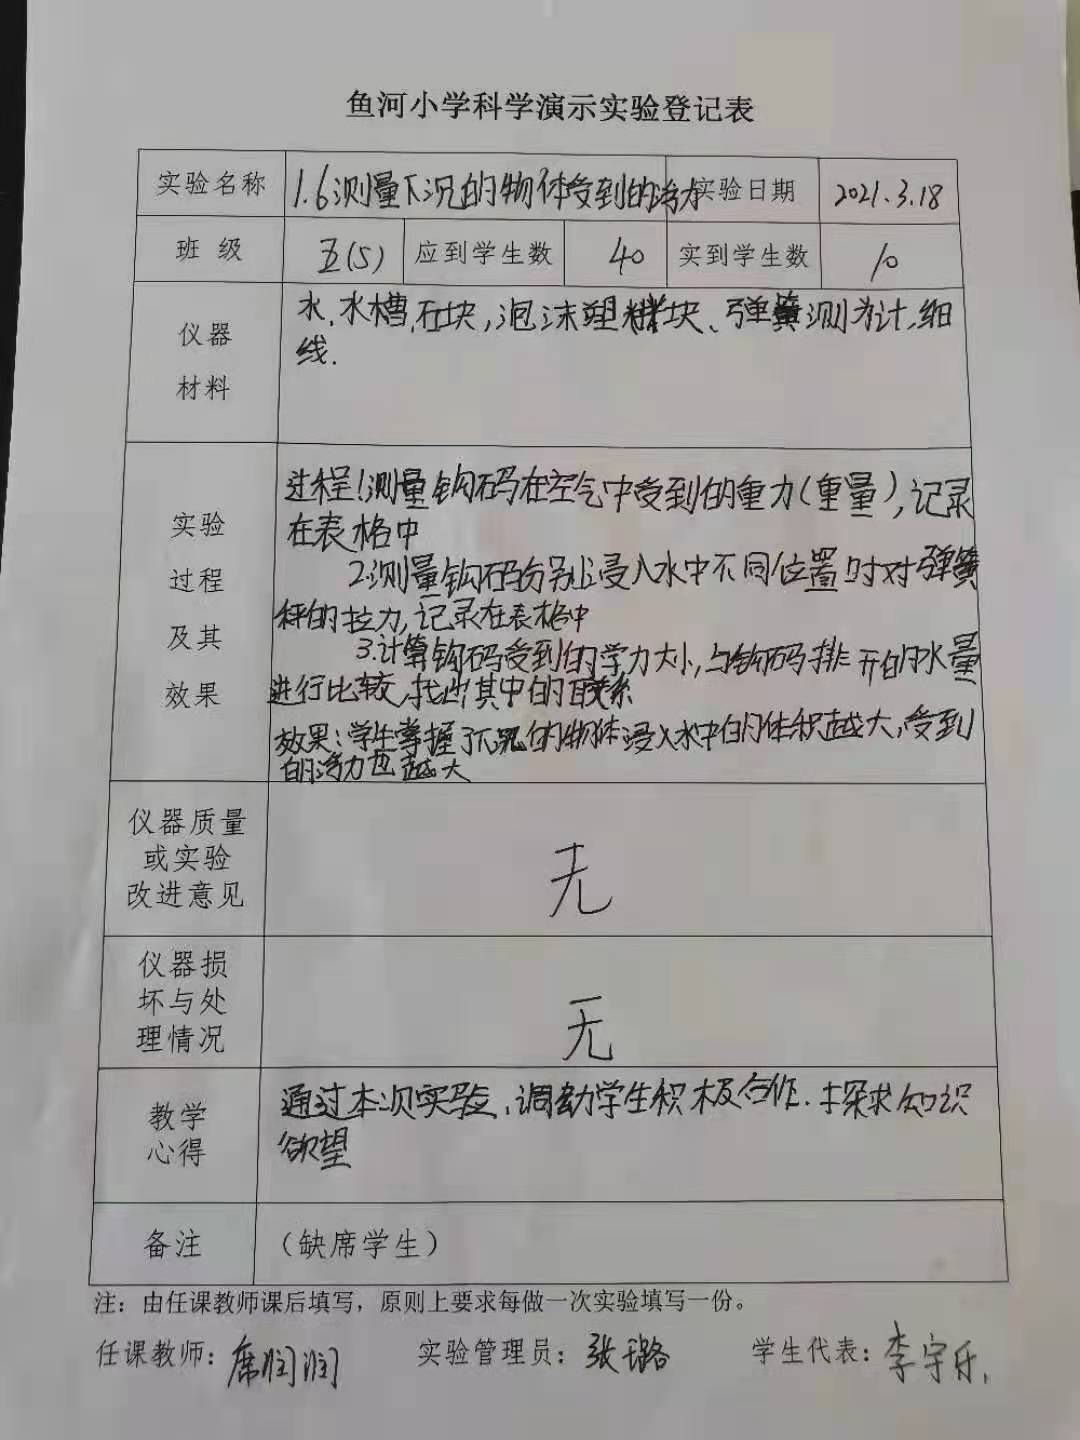 鱼河小学科学演示实验登记表
实验名称 1.6测量下沉的物体受到的浮力 实验日期 2021.3.18
班 级 五(5) 应到学生数 40 实到学生数 10
仪器
材料
水.水槽,石块,泡沫塑料块、弹簧测力计,细
线.
实验
过程
及其
效果
过程1测量钩码在空气中受到的重力(重量),记录
在表格中
2.测量钩码分别浸入水中不同位置时对弹簧
秤的拉力,记录在表格中
3.计算钩码受到的浮力大小,与钩码排开的水量
进行比较,找出其中的联系
效果:学生掌握了下沉的物体浸入水中的体积越大,受到
的浮力也越大
仪器质量
或实验
改进意见
无
仪器损
坏与处
理情况
无
教学
心得
通过本次实验,调动学生积极合作.探求知识
欲望
备注 (缺席学生)
注：由任课教师课后填写，原则上要求每做一次实验填写一份。
任课教师：席润润 实验管理员：张璐 学生代表：李宇乐